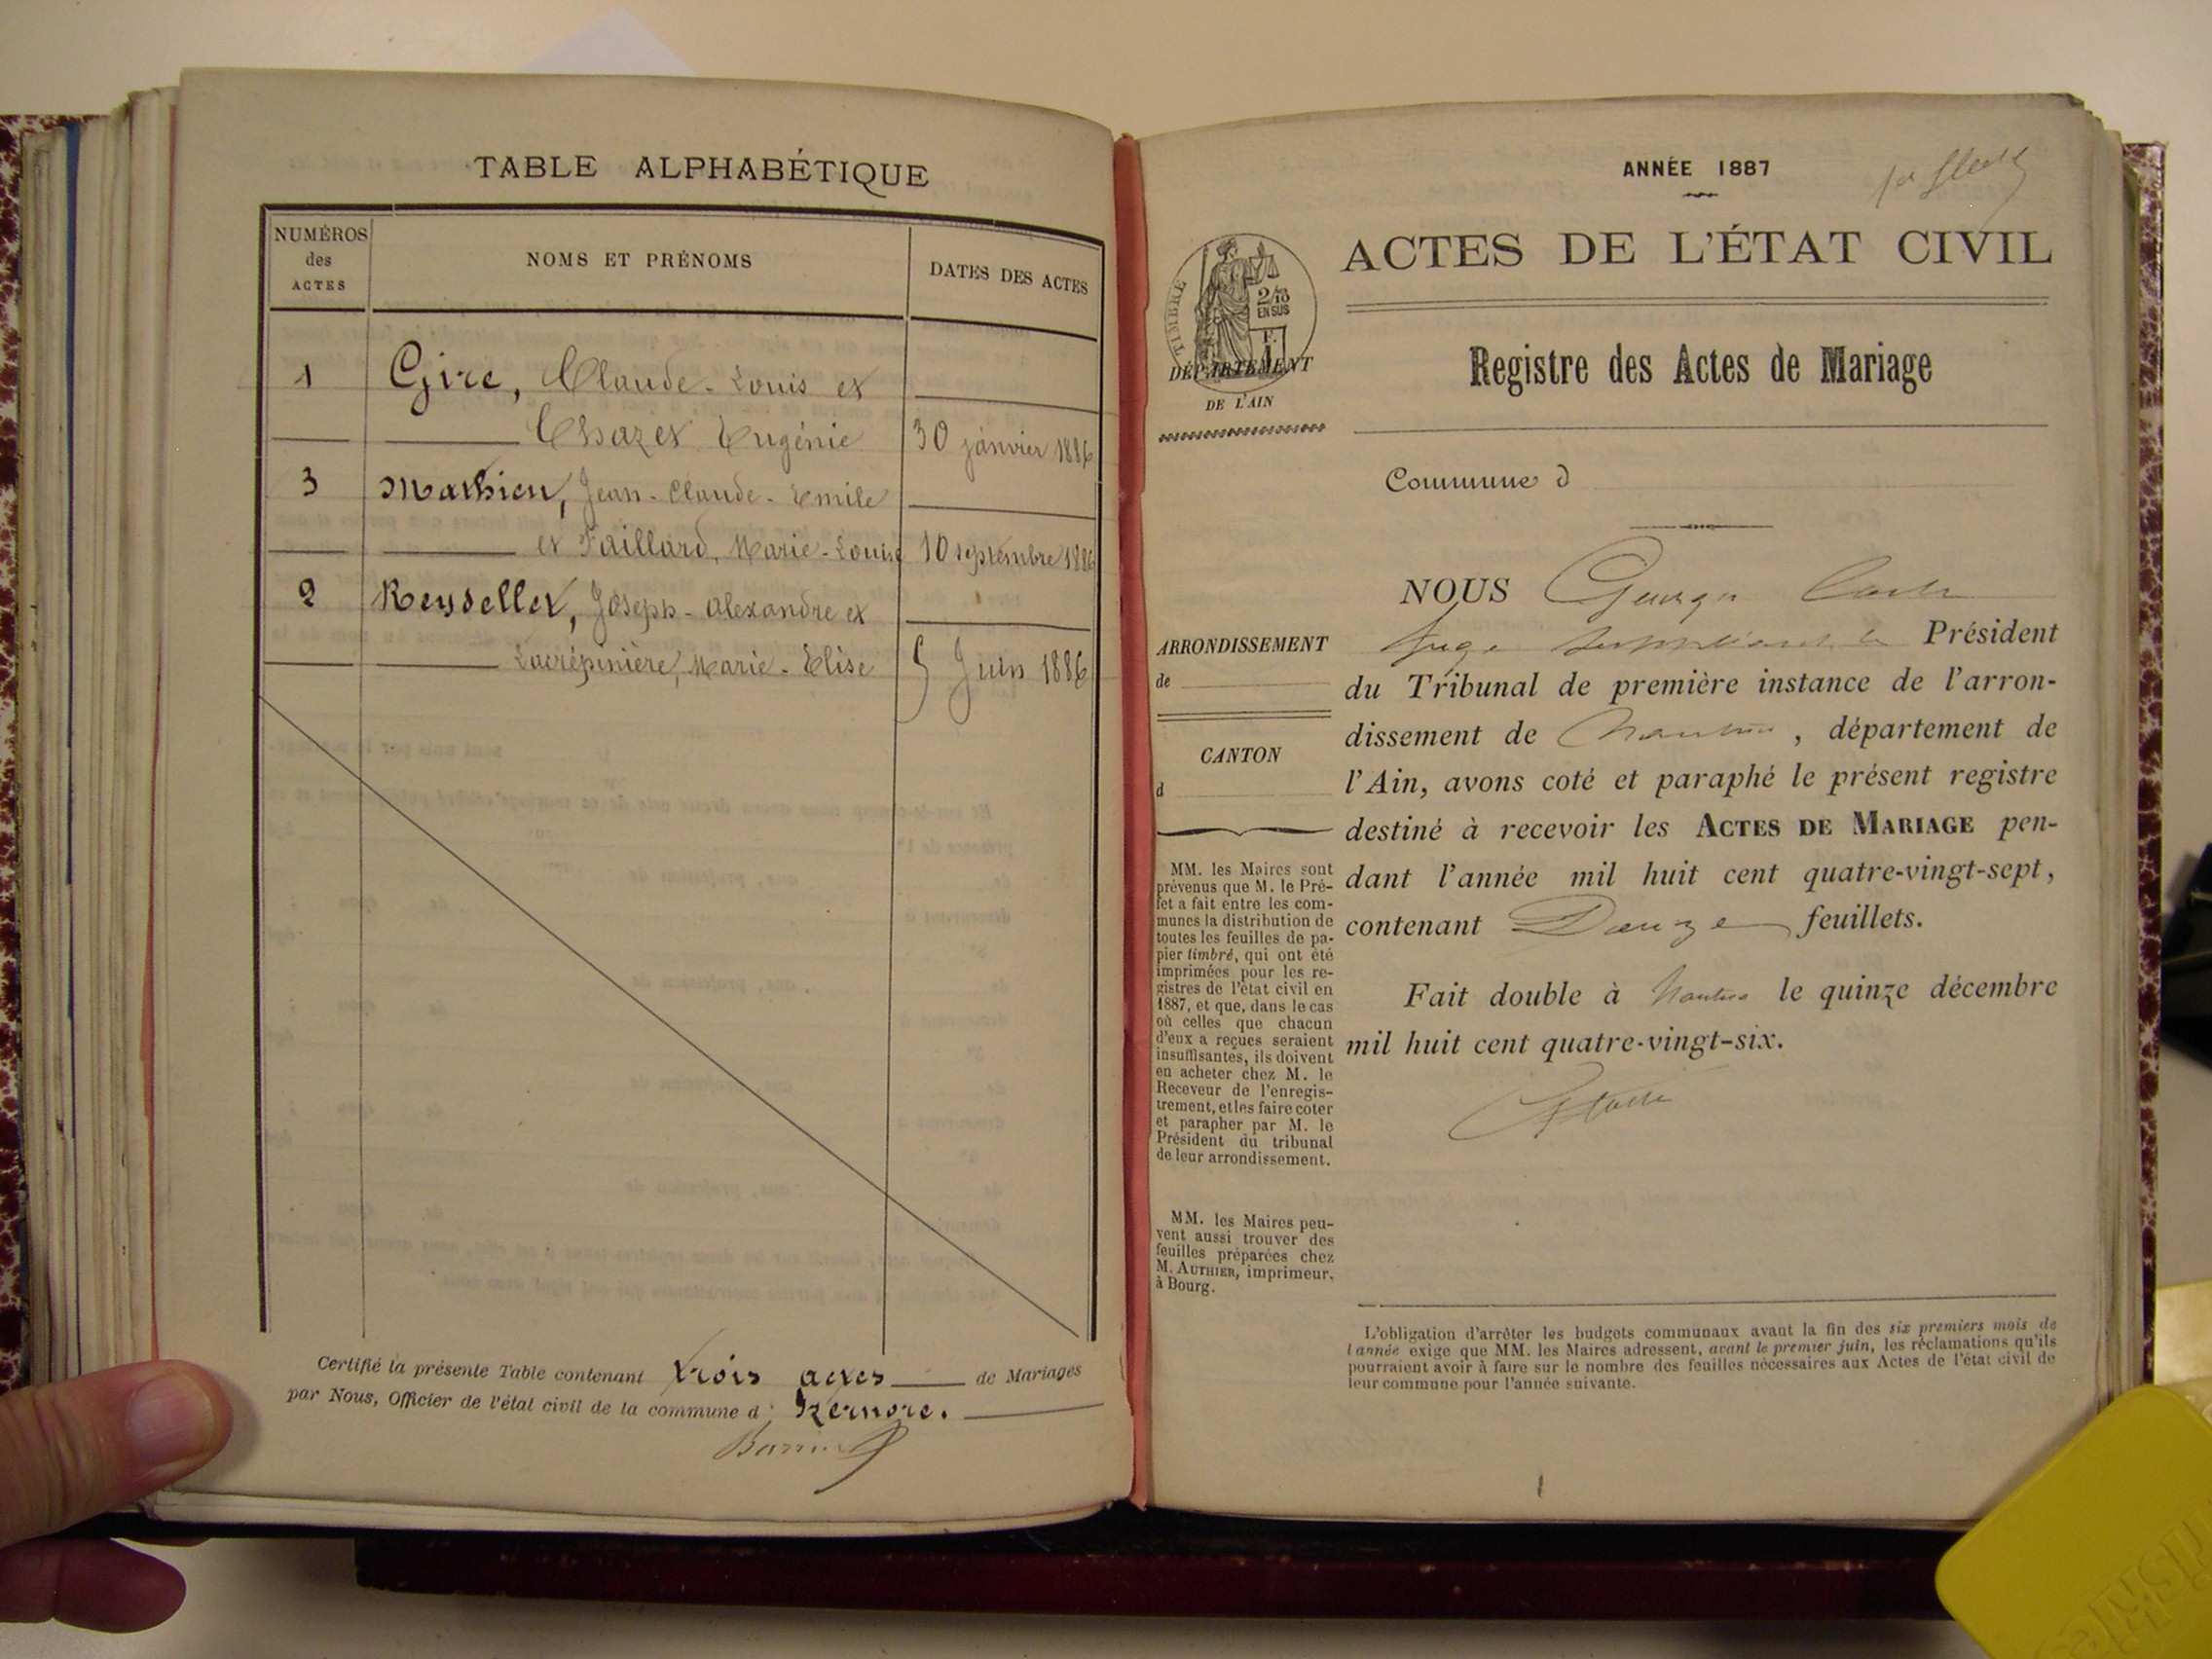 TABLE ALPHABÉTIQUE
NUMÉROS
des
ACTES
NOMS ET PRÉNOMS
DATES DES ACTES
1 Gire, Claude-Louis et
Chazet Eugénie 30 janvier 1886
3 Mathieu, Jean-Claude-Emile
et Paillard, Marie-Louise 10 septembre 1886
2 Reydellet, Joseph-Alexandre et
Lacrépinière, Marie-Elise 5 Juin 1886
Certifié la présente Table contenant trois actes de Mariages
par Nous, Officier de l'état civil de la commune d' Izernore.
ANNÉE 1887
ACTES DE L'ÉTAT CIVIL
TIMBRE
2/10
EN SUS
DÉPARTEMENT
DE L'AIN
Registre des Actes de Mariage
Commune d
NOUS Georges
Juge suppléant le Président
du Tribunal de première instance de l'arron-
dissement de Nantua, département de
l'Ain, avons coté et paraphé le présent registre
destiné à recevoir les ACTES DE MARIAGE pen-
dant l'année mil huit cent quatre-vingt-sept,
contenant Douze feuillets.
Fait double à Nantua le quinze décembre
mil huit cent quatre-vingt-six.
ARRONDISSEMENT
de
CANTON
d
MM. les Maires sont
prévenus que M. le Pré-
fet a fait entre les com-
munes la distribution de
toutes les feuilles de pa-
pier timbré, qui ont été
imprimées pour les re-
gistres de l'état civil en
1887, et que, dans le cas
où celles que chacun
d'eux a reçues seraient
insuffisantes, ils doivent
en acheter chez M. le
Receveur de l'enregis-
trement, et les faire coter
et parapher par M. le
Président du tribunal
de leur arrondissement.
MM. les Maires peu-
vent aussi trouver des
feuilles préparées chez
M. AUTHIER, imprimeur,
à Bourg.
L'obligation d'arrêter les budgets communaux avant la fin des six premiers mois de
l'année exige que MM. les Maires adressent, avant le premier juin, les réclamations qu'ils
pourraient avoir à faire sur le nombre des feuilles nécessaires aux Actes de l'état civil de
leur commune pour l'année suivante.